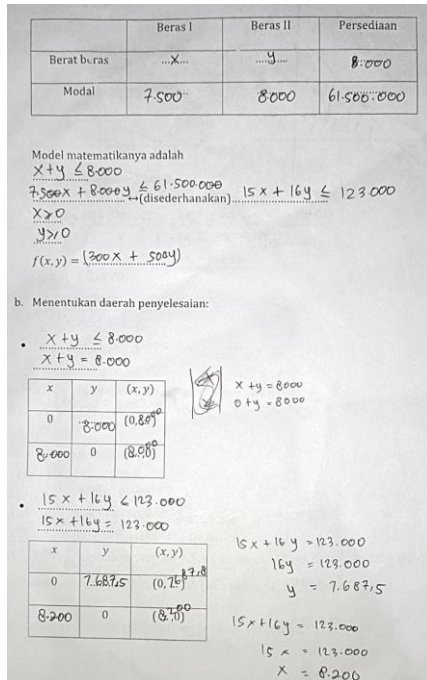 Beras I Beras II Persediaan
Berat beras ...x... ...y.... 8.000
Modal 7.500 8.000 61.500.000
Model matematikanya adalah
x+y ≤ 8.000
7.500x + 8.000y ≤ 61.500.000 ↔(disederhanakan) 15x + 16y ≤ 123.000
x≥0
y≥0
f(x,y) = (300x + 500y)
b. Menentukan daerah penyelesaian:
• x+y ≤ 8.000
x+y = 8.000
x y (x,y)
0 8.000 (0,8000)
8.000 0
x+y = 8000
0+y = 8000
• 15x + 16y < 123.000
15x + 16y = 123.000
x y (x,y)
0 7.687,5
8.200 0
15x + 16y = 123.000
16y = 123.000
y = 7.687,5
15x + 16y = 123.000
15x = 123.000
x = 8.200